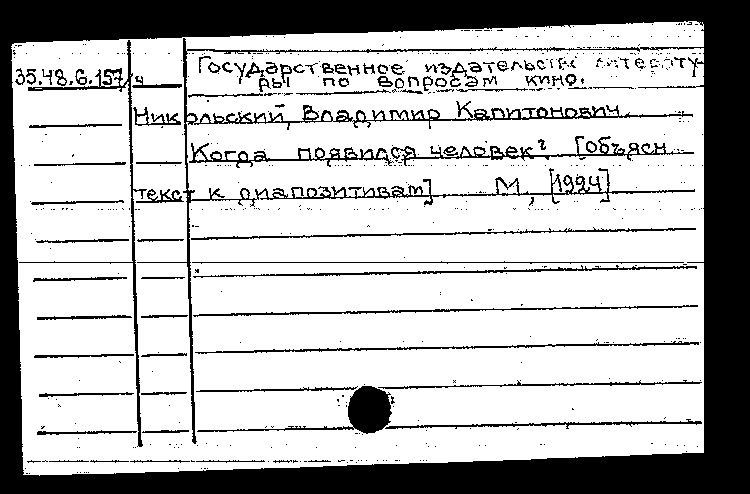 Государственное издательство литерату-
35.48.6.157/4 ры по вопросам кино.
Никольский, Владимир Капитонович.
Когда появился человек? [объясн.
текст к диапозитивам]. М, [1924]